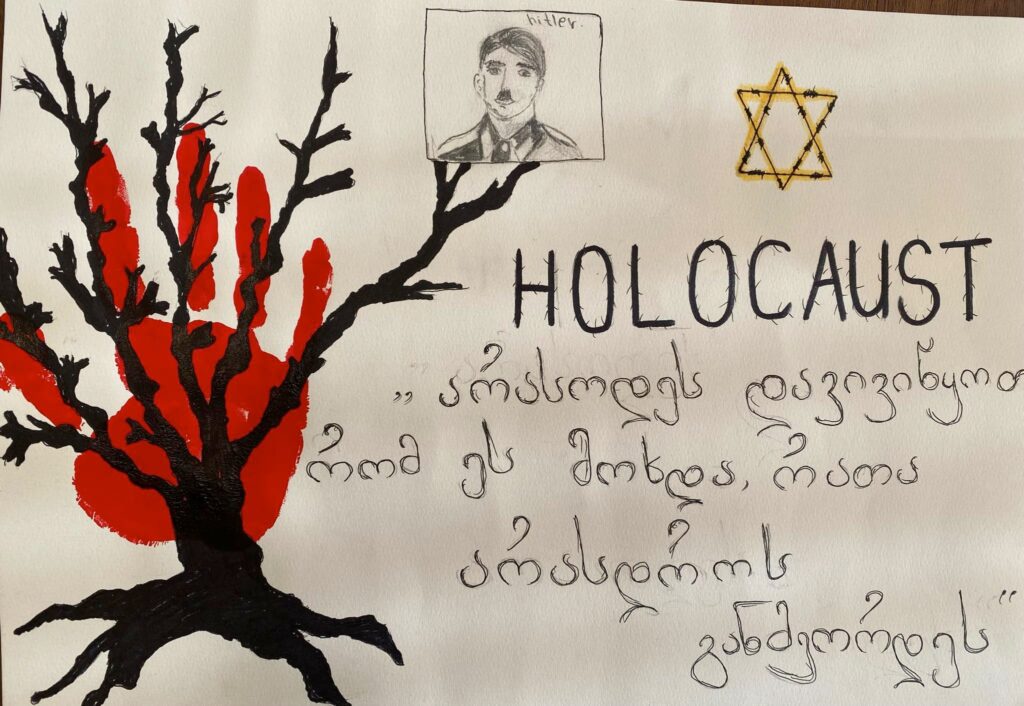 hitler.
HOLOCAUST
„ არასოდეს დავივიწყოთ
რომ ეს მოხდა, რათა
არასდროს
განმეორდეს“